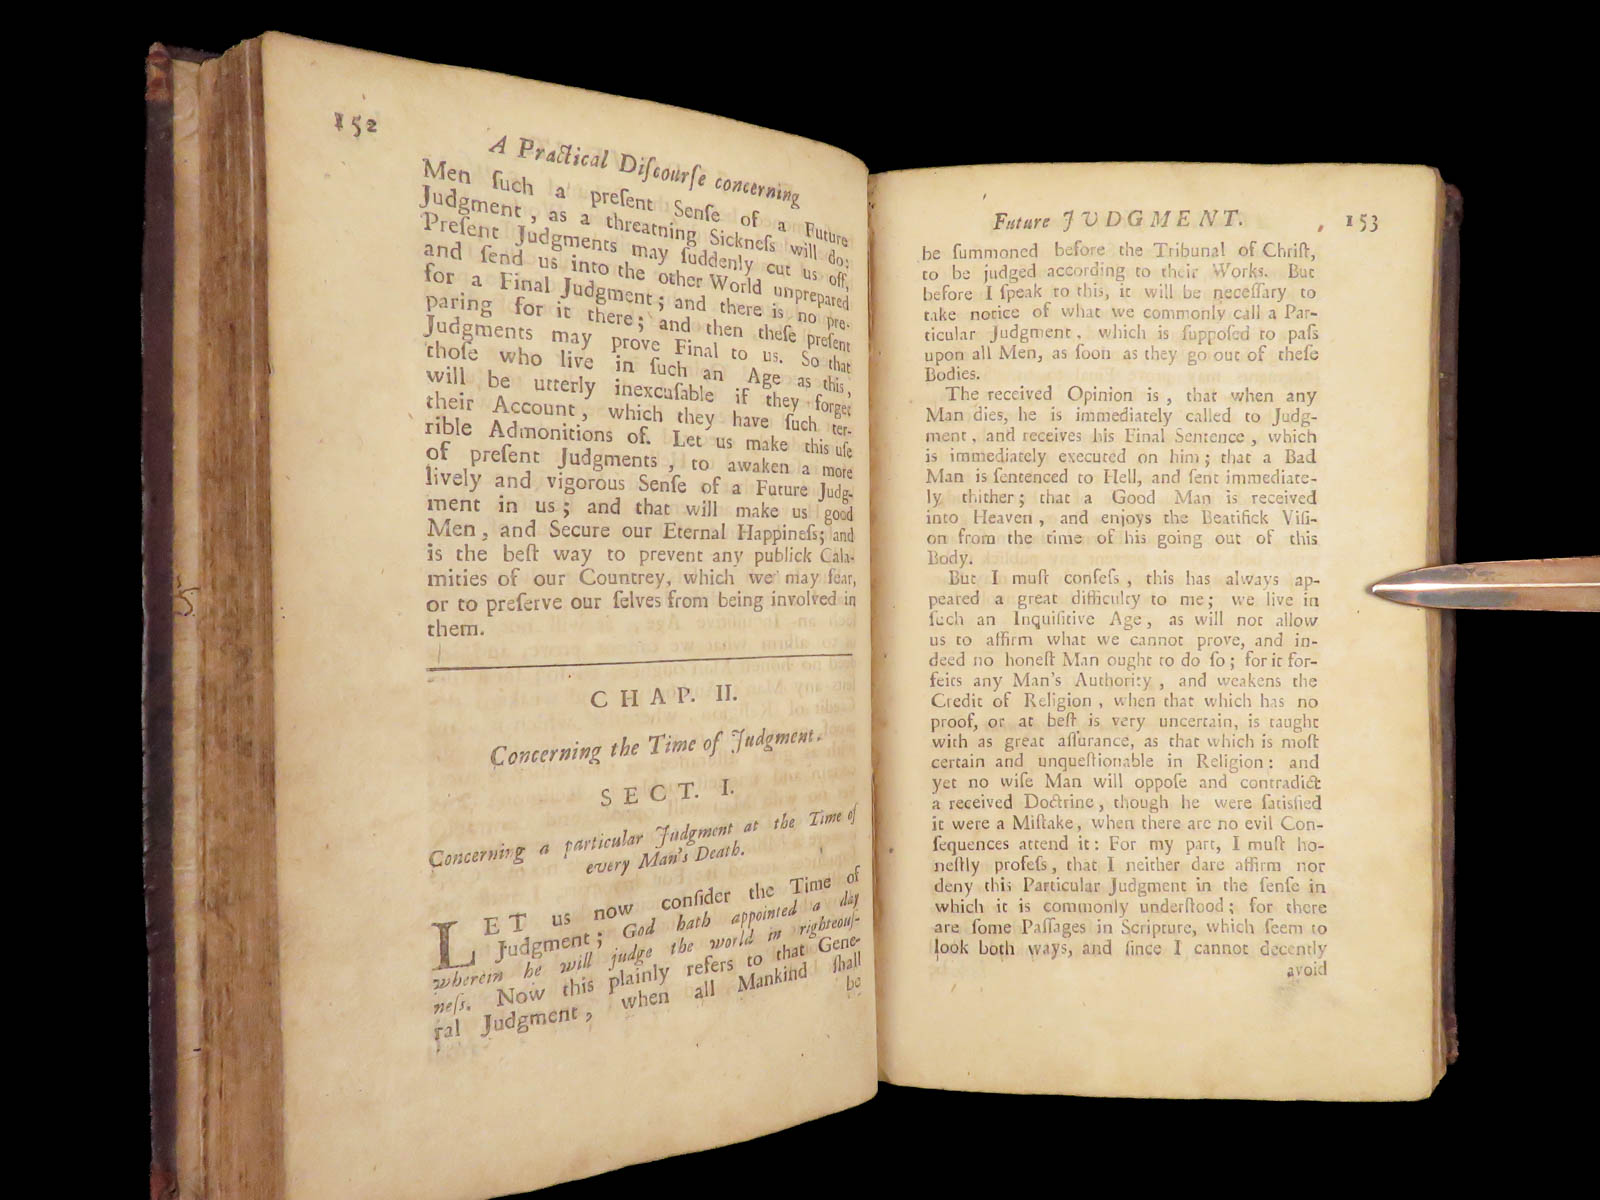 152
A Practical Diſcourſe concerning
Men ſuch a preſent Senſe of a Future
Judgment, as a threatning Sickneſs will do:
Preſent Judgments may ſuddenly cut us off,
and ſend us into the other World unprepared
for a Final Judgment; and there is no pre-
paring for it there; and then theſe preſent
Judgments may prove Final to us. So that
thoſe who live in ſuch an Age as this,
will be utterly inexcuſable if they forget
their Account, which they have ſuch ter-
rible Admonitions of. Let us make this uſe
of preſent Judgments, to awaken a more
lively and vigorous Senſe of a Future Judg-
ment in us; and that will make us good
Men, and Secure our Eternal Happineſs; and
is the beſt way to prevent any publick Cala-
mities of our Countrey, which we may fear,
or to preſerve our ſelves from being involved in
them.
CHAP. II.
Concerning the Time of Judgment.
SECT. I.
Concerning a particular Judgment at the Time of
every Man's Death.
LET us now conſider the Time of
Judgment; God hath appointed a day
wherein he will judge the world in righteouſ-
neſs. Now this plainly refers to that Gene-
ral Judgment, when all Mankind ſhall
be
Future JUDGMENT. 153
be ſummoned before the Tribunal of Chriſt,
to be judged according to their Works. But
before I ſpeak to this, it will be neceſſary to
take notice of what we commonly call a Par-
ticular Judgment, which is ſuppoſed to paſs
upon all Men, as ſoon as they go out of theſe
Bodies.
The received Opinion is, that when any
Man dies, he is immediately called to Judg-
ment, and receives his Final Sentence, which
is immediately executed on him; that a Bad
Man is ſentenced to Hell, and ſent immediate-
ly thither; that a Good Man is received
into Heaven, and enjoys the Beatifick Viſi-
on from the time of his going out of this
Body.
But I muſt confeſs, this has always ap-
peared a great difficulty to me; we live in
ſuch an Inquiſitive Age, as will not allow
us to affirm what we cannot prove, and in-
deed no honeſt Man ought to do ſo; for it for-
feits any Man's Authority, and weakens the
Credit of Religion, when that which has no
proof, or at beſt is very uncertain, is taught
with as great aſſurance, as that which is moſt
certain and unqueſtionable in Religion: and
yet no wiſe Man will oppoſe and contradict
a received Doctrine, though he were ſatisfied
it were a Miſtake, when there are no evil Con-
ſequences attend it: For my part, I muſt ho-
neſtly profeſs, that I neither dare affirm nor
deny this Particular Judgment in the ſenſe in
which it is commonly underſtood; for there
are ſome Paſſages in Scripture, which ſeem to
look both ways, and ſince I cannot decently
avoid